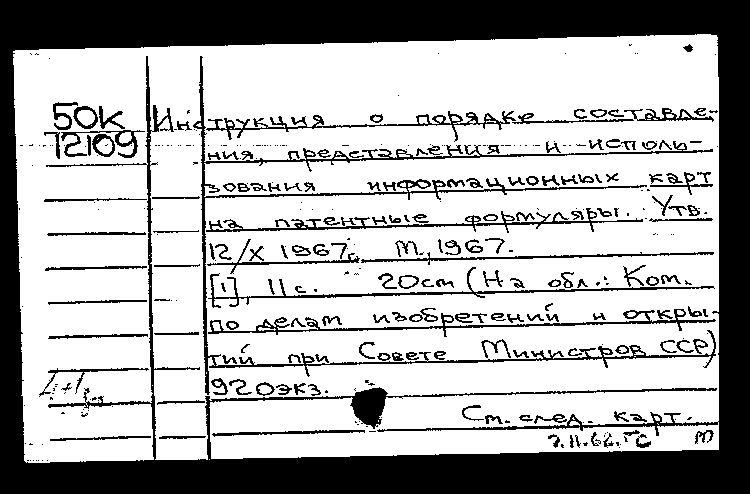 50К
12109
Инструкция о порядке составле-
ния, представления и исполь-
зования информационных карт
на патентные формуляры. Утв.
12/X 1967г. М., 1967.
[1], 11 с. 20см (На обл.: Ком.
по делам изобретений и откры-
тий при Совете Министров ССР)
920экз.
См. след. карт.